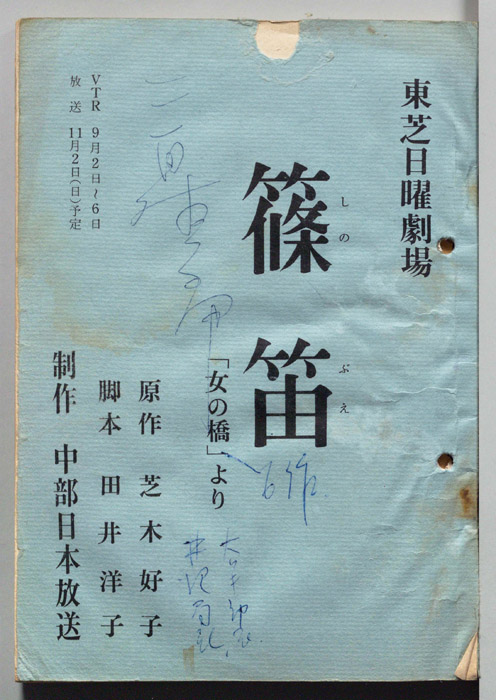 東芝日曜劇場
しの ぶえ
篠笛
「女の橋」より
原作 芝木好子
脚本 田井洋子
制作 中部日本放送
VTR 9月2日~6日
放送 11月2日(日)予定